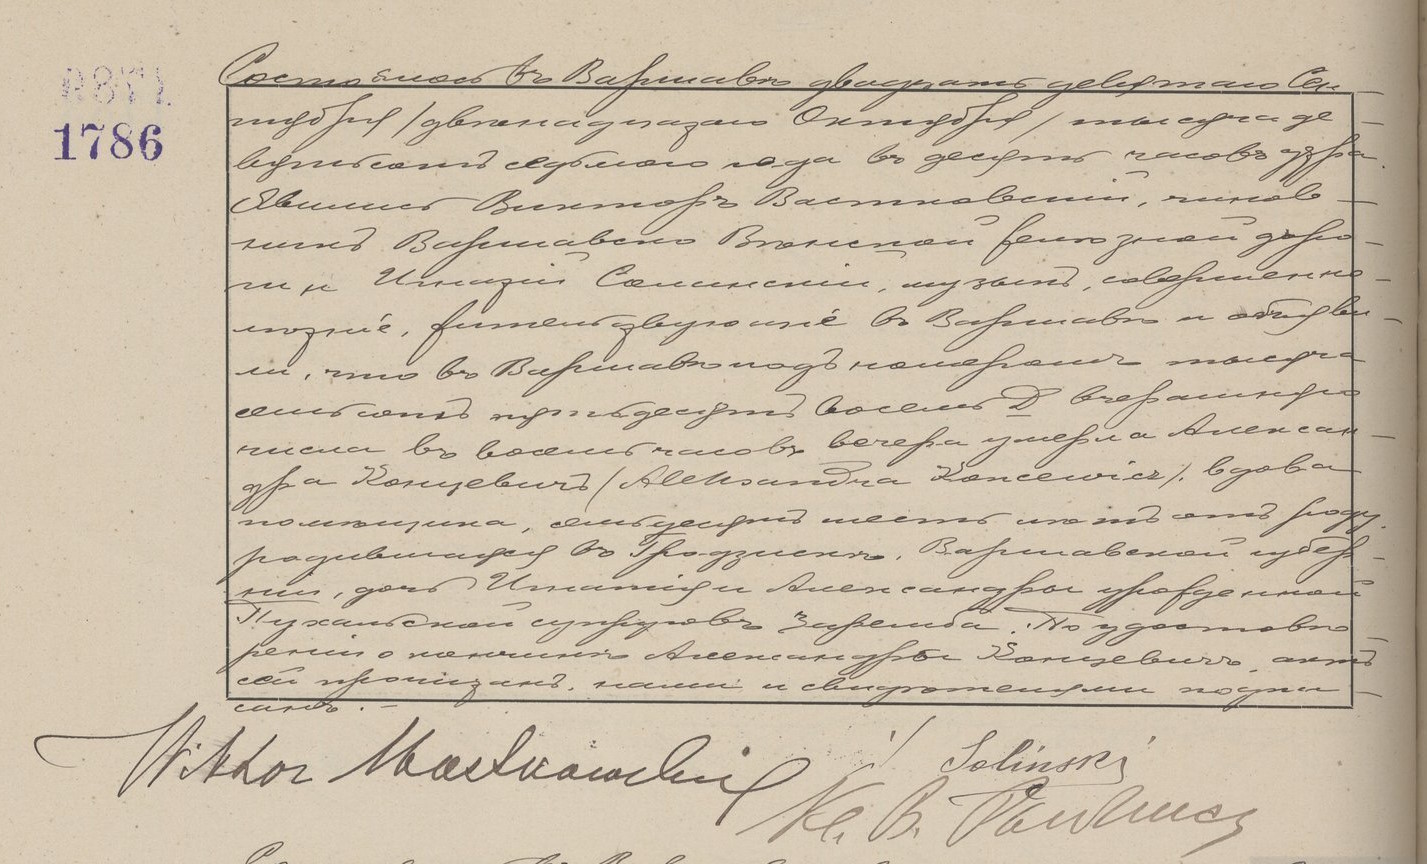 1786
Состоялось въ Варшавѣ двадцать девятаго Сен-
тября /двѣнадцатаго Октября/ тысяча де-
вятьсотъ седьмого года въ десять часовъ утра.
Явились Викторъ Вастковский, чинов-
никъ Варшавско Вѣнской желѣзной доро-
ги и Игнатій Солинскій, музыкъ, совершенно-
лѣтніе, жительствующіе въ Варшавѣ и объяви-
ли, что въ Варшавѣ подъ номеромъ тысяча
семьсотъ пятьдесятъ восемь D вчерашняго
числа въ восемь часовъ вечера умерла Алексан-
дра Концевичъ /Aleksandra Koncewicz/, вдова
помѣщика, семьдесятъ шесть лѣтъ отъ роду,
родившаяся въ Гродзискѣ, Варшавской губер-
ніи, дочь Игнатія и Александры урожденной
Пухальской супруговъ Заремба. По удостовѣ-
реніи о кончинѣ Александры Концевичъ, актъ
сей прочитанъ, нами и свидѣтелями подпи-
санъ. –
Wiktor Wastkowski
Soliński